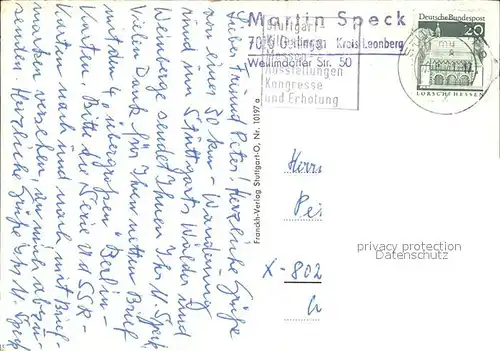 Martin Speck
7016 Gerlingen Kreis Leonberg
Weilimdorfer Str. 50
Stuttgart
Ausstellungen
Kongresse
und Erholung
Deutsche Bundespost
20
LORSCH/HESSEN
Lieber Freund Peter! Herzliche Grüße
zu einer 50 km-Wanderung
rund um Stuttgarts Wälder und
Weinberge sendet Ihnen Ihr M. Speck
Vielen Dank für Ihren netten Brief
mit den 4 übergroßen Berlin-
Karten. Bitte die Serie UdSSR-
Karten nach und nach mit Brief-
marken versehen, an mich abzu-
senden. Herzliche Grüße Ihr M. Speck
Franckh-Verlag Stuttgart-O, Nr. 10197 a
Herrn
Pe
X-802
privacy protection
Datenschutz